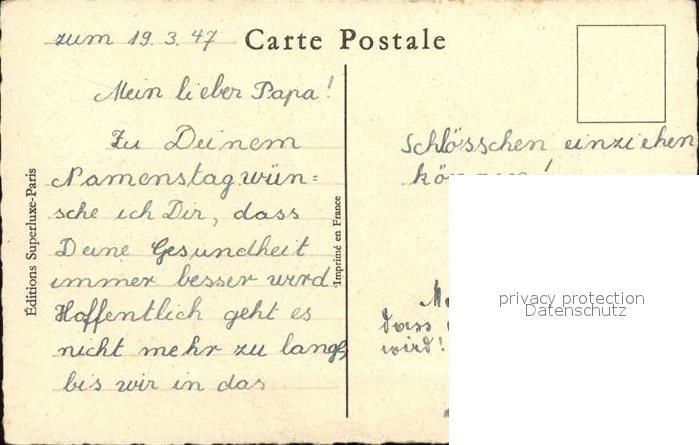 zum 19.3.47
Carte Postale
Mein lieber Papa!
Zu Deinem
Namenstag wün=
sche ich Dir, dass
Deine Gesundheit
immer besser wird.
Hoffentlich geht es
nicht mehr zu lange,
bis wir in das
Schlösschen einziehen
können!
dass
wird!
Éditions Superluxe-Paris
Imprimé en France
privacy protection
Datenschutz